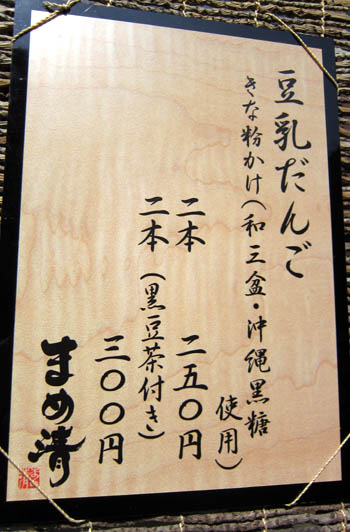 豆乳だんご
きな粉かけ(和三盆・沖縄黒糖
使用)
二本 二五〇円
二本(黒豆茶付き)
三〇〇円
まめ清